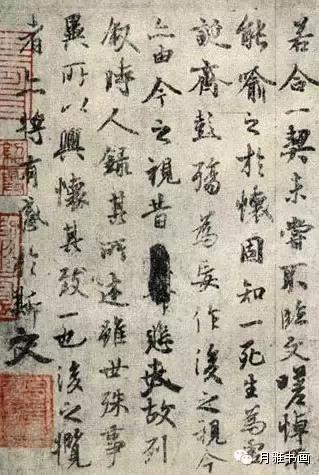 若合一契未嘗不臨文嗟悼
能喻之於懷固知一死生為虛
誕齊彭殤為妄作後之視今
亦由今之視昔悲夫故列
叙時人錄其所述雖世殊事
異所以興懷其致一也後之攬
者亦將有感於斯文
月雅书画